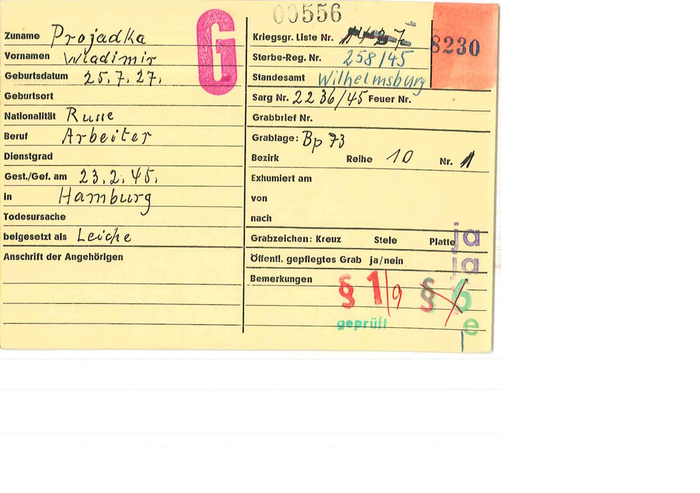 00556
G
8230
Zuname Projadka
Vornamen Wladimir
Geburtsdatum 25.7.27.
Geburtsort
Nationalität Russe
Beruf Arbeiter
Dienstgrad
Gest./Gef. am 23.2.45.
in Hamburg
Todesursache
beigesetzt als Leiche
Anschrift der Angehörigen
Kriegsgr. Liste Nr.
Sterbe-Reg. Nr. 258/45
Standesamt Wilhelmsburg
Sarg Nr. 2236/45 Feuer Nr.
Grabbrief Nr.
Grablage: Bp 73
Bezirk Reihe 10 Nr. 1
Exhumiert am
von
nach
Grabzeichen: Kreuz Stele Platte ja
Öffentl. gepflegtes Grab ja/nein ja
Bemerkungen § 1/9 § 6
geprüft e